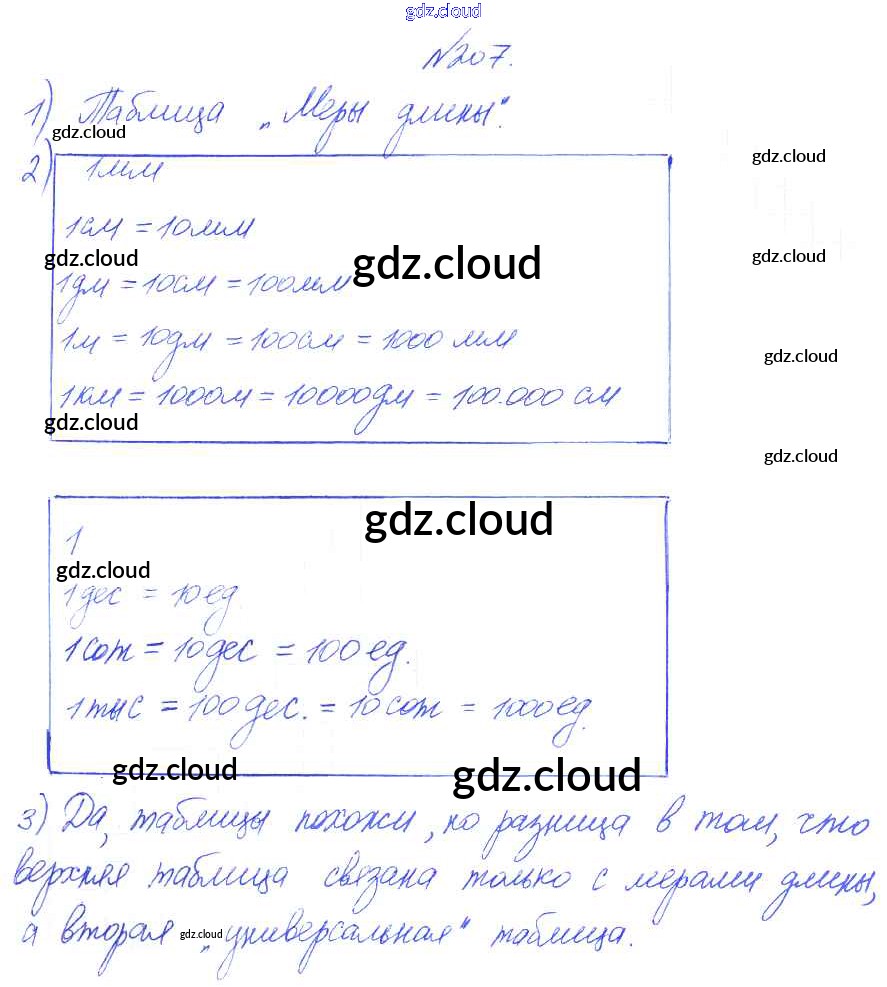 gdz.cloud
№207.
1) Таблица „Меры длины".
gdz.cloud
2) 1мм
gdz.cloud
1см = 10мм
gdz.cloud
gdz.cloud
gdz.cloud
1дм = 10см = 100мм
1м = 10дм = 100см = 1000 мм
gdz.cloud
1км = 1000м = 10000дм = 100.000 см
gdz.cloud
gdz.cloud
gdz.cloud
1
gdz.cloud
1дес = 10ед.
1сот = 10дес = 100ед.
1тыс = 100дес. = 10сот = 1000ед.
gdz.cloud
gdz.cloud
3) Да, таблицы похожи, но разница в том, что
верхняя таблица связана только с мерами длины,
а вторая „универсальная" таблица.
gdz.cloud